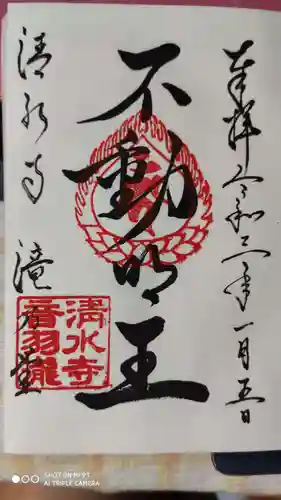 奉拝 令和二年一月五日
不動明王
清水寺 滝の堂
清水寺
音羽瀧
SHOT ON MI 9T
AI TRIPLE CAMERA